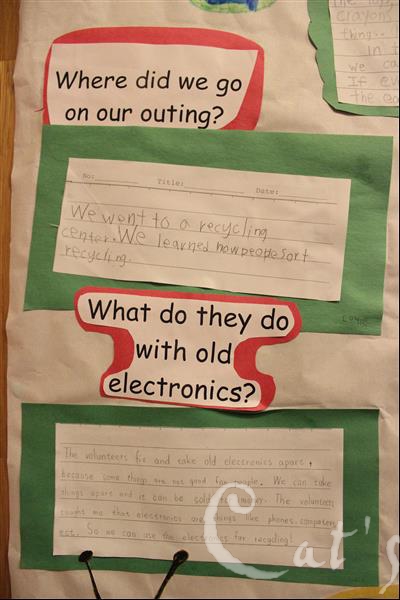 crayons
thing..
in t
we ca
If ev
the ea
Where did we go
on our outing?
No: Title: Date:
We went to a recycling
center. We learned how people sort
recycling.
Louis
What do they do
with old
electronics?
The volunteers fix and take old electronics apart,
because some things are not good for people. We can take
things apart and it can be sold for money. The volunteers
taught me that electronics are things like phones, computers
ect. So we can use the electronics for recycling!
Cat's